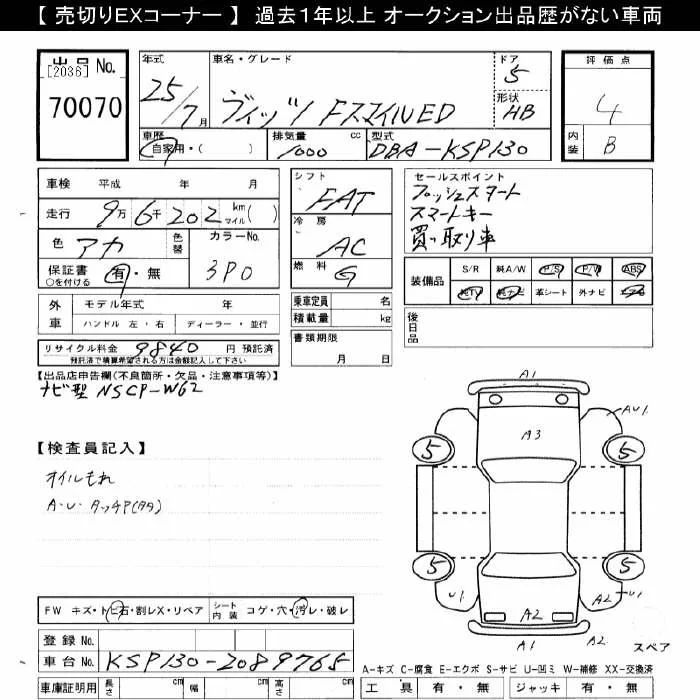 【 売切りEXコーナー 】 過去１年以上 オークション出品歴がない車両
出品 No.
[2036]
70070
年式
25/7月
車名・グレード
ヴィッツ FスマイルED
ドア
5
形状
HB
評価点
4
内装
B
車歴
自家用・(　　)
排気量 cc
1000
型式
DBA-KSP130
車検 平成 年 月
走行 9万6千202 km マイル( )
色 アカ
色替
カラーNo.
3P0
保証書 有・無
○を付ける
外車
モデル年式 年
ハンドル 左・右 ディーラー・並行
リサイクル料金 9840 円 預託済
預託済で積算希望される方は金額記入して下さい
シフト
FAT
冷房
AC
燃料
G
乗車定員 名
積載量 kg
書類期限
月 日
セールスポイント
プッシュスタート
スマートキー
買い取り車
装備品
S/R 純A/W P/S P/W ABS
純TV 純ナビ 革シート 外ナビ エアB
後日品
【出品店申告欄(不良箇所・欠品・注意事項等)】
ナビ型 NSCP-W62
【検査員記入】
オイルもれ
A・U・タッチP(タタ)
FW キズ・トビ石・割レX・リペア
シート内装 コゲ・穴・汚レ・破レ
登録 No.
車台 No. KSP130-2089765
車庫証明用 長さ cm 幅 cm 高さ cm
A1
AU1
A3
5
5
5
5
U1
A2
A1
A2
スペア
A-キズ C-腐食 E-エクボ S-サビ U-凹ミ W-補修 XX-交換済
工具 有・無 ジャッキ 有・無